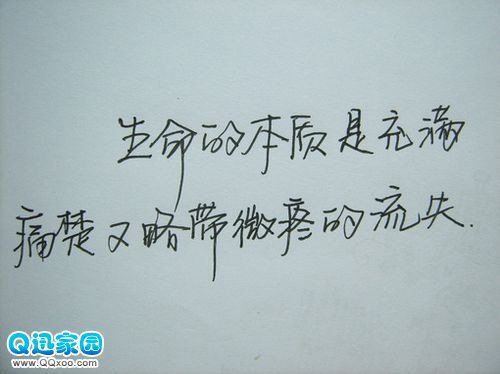 生命的本质是充满
痛楚又略带微疼的流失.
Q迅家园
www.QQxoo.com